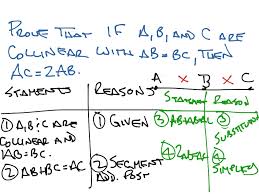 PROVE THAT IF A, B, AND C ARE
COLLINEAR WITH AB = BC, THEN
AC = 2AB.
A X B X C
STAMENTS REASONS
STATEMENT REASON
① A, B, C ARE
COLLINEAR AND
AB = BC.
① GIVEN
② AB+BC=AC
② SEGMENT
ADD. POST
③ AB+AB=AC
③ SUBSTITUTION
④ 2AB=AC
④
SIMPLIFY